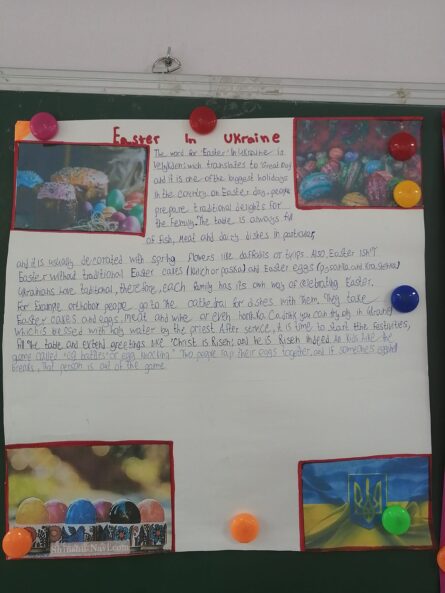 Easter in Ukraine
The word for 'Easter' in Ukraine is
Velykden, wich translates to 'Great Day'
and it is one of the biggest holidays
in the country. On Easter day, people
prepare traditional delights for
the family. The table is always full
of fish, meat and dairy dishes in particular,
and it is usually decorated with spring flowers like daffodils or tulips. Also, Easter isn't
Easter without traditional Easter cakes (kulich or paska) and Easter eggs (pysanka and krashenka)
Ukrainians love traditional, therefore, each family has its own way of celebrating Easter.
For Example orthodox people go to the cathedral for dishes with them. They take
Easter cakes and eggs, meat and wine or even horilka
which is blessed with holy water by the priest. After service, it is time to start the festivities,
fill the table and extend greetings like "Christ is Risen!" and he is Risen indeed. As kids like the
game called "egg battles" or egg knocking". Two people tap their eggs together, and if someones egg
breaks, that person is out of the game.
Shinshu-Navi.com